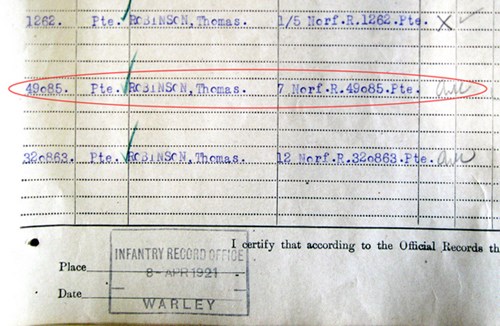 1262. Pte. ROBINSON, Thomas. 1/5 Norf.R.1262.Pte. X
49085. Pte. ROBINSON, Thomas. 7 Norf.R.49085.Pte.
320863. Pte. ROBINSON, Thomas. 12 Norf.R.320863.Pte.
I certify that according to the Official Records th
INFANTRY RECORD OFFICE
Place
8-APR 1921
Date
WARLEY